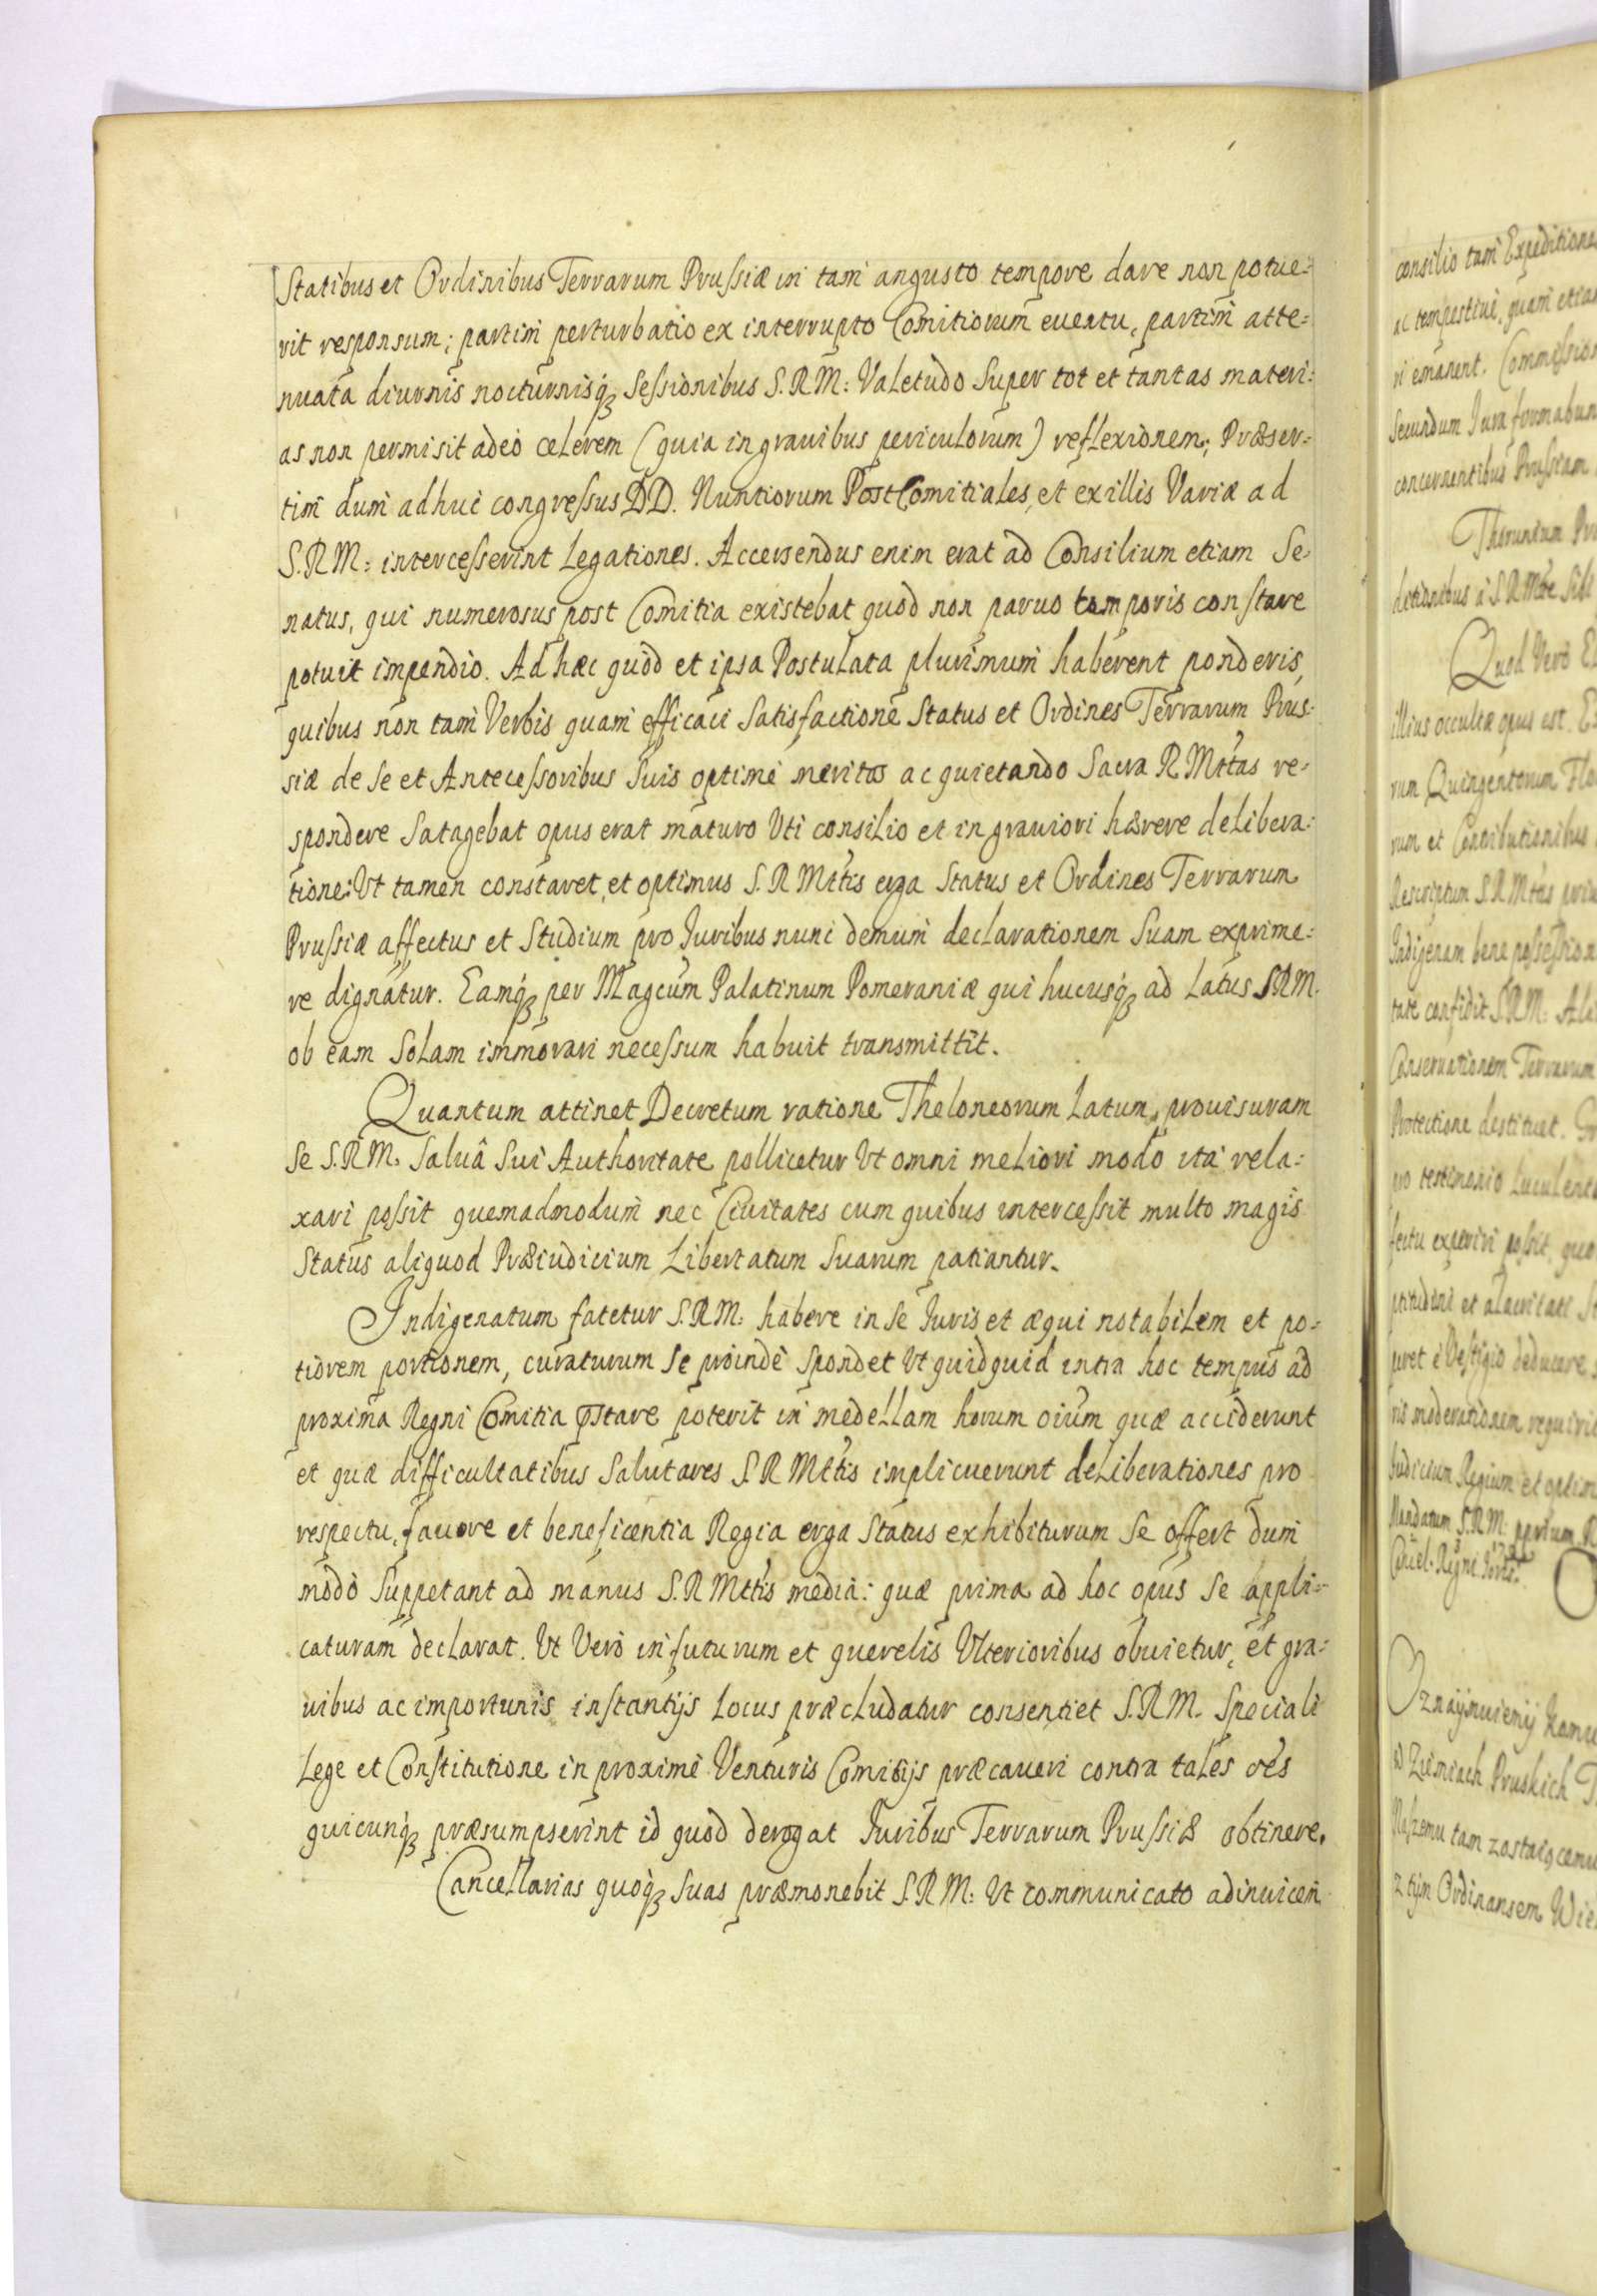 Statibus et Ordinibus Terrarum Prussiæ in tam angusto tempore dare non potue:
rit responsum; partim perturbatio ex interrupto Comitiorum euentu, partim atte:
nuata diurnis nocturnisq́ꝫ Sessionibus S.R.M: Valetudo Super tot et tantas materi:
as non permisit adeò celerem (quia in grauibus periculorum) reflexionem; Præser:
tim dum adhuc congressus DD. Nuntiorum PostComitiales, et ex illis Variæ ad
S.R.M: intercesserint Legationes. Accersendus enim erat ad Consilium etiam Se:
natus, qui numerosus post Comitia existebat quod non paruo temporis constare
potuit impendio. Ad hæc quòd et ipsa Postulata plurimum haberent ponderis,
quibus non tam Verbis quam efficaci Satisfactione Status et Ordines Terrarum Prus:
siæ de Se et Antecessoribus Suis optimè meritos acquietando Sacra R Mttas re:
spondere Satagebat opus erat maturo Vti consilio et in grauiori hærere delibera:
tione: Vt tamen constaret, et optimus S.R Mttis erga Status et Ordines Terrarum
Prussiæ affectus et Studium pro Juribus nunc demum declarationem Suam exprime:
re dignatur. Eamq́ꝫ per Magcum Palatinum Pomeraniæ qui hucusq́ꝫ ad Latus S.R.M.
ob eam Solam immorari necessum habuit transmittit.
Quantum attinet Decretum ratione Theloneorum Latum, prouisuram
Se S.R.M. Saluâ Sui Authoritate pollicetur Vt omni meliori modo ita rela:
xari possit quemadmodum nec Ciuitates cum quibus intercessit multo magis
Status aliquod Præiudicium Libertatum Suarum patiantur.
Indigenatum fatetur S.R.M: habere in Se Juris et æqui notabilem et po:
tiorem portionem, curaturum Se proindè Spondet Vt quidquid intra hoc tempus ad
proxima Regni Comitia p̃stare poterit in medellam horum oium quæ acciderunt
et quæ difficultatibus Salutares S.R Mttis implicuerunt deliberationes pro
respectu, fauore et beneficentia Regia erga Status exhibiturum Se offert dum
modò Suppetant ad manus S.R Mttis media: quæ prima ad hoc opus Se appli:
caturam declarat. Vt Verò in futurum et querelis Vlterioribus obuietur, et gra:
uibus ac importunis instantijs Locus præcludatur consentiet S.R.M. Speciali
Lege et Constitutione in proximè Venturis Comitijs præcaueri contra tales oẽs
quicunq́ꝫ præsumpserint id quod derogat Juribus Terrarum Prussiæ obtinere.
Cancellarias quoq́ꝫ Suas præmonebit S.R.M: Vt communicato adinuicem
consilio tam Expeditione
ac tempestiue, quam etiam
ri emanent. Commission
Secundum Jura formabun
concernentibus Prussiam
Thorunium
Quod Verò
illius occultæ opus est.
rum Quingentorum Flo
rum et Contributionibus
Rescriptum S.R Mttis
Indigenam bene possession
tate confidit S.R.M:
Conseruationem Terrarum
Protectione destituet.
pro testimonio Luculent
fectu experiri possit, quo
ptitudini et alacritati
è Vestigio deducere
ris moderationem requiri
Judicium Regium et
Mandatum S.R.M.
Oznaÿmuienÿ
w Ziemiach Pruskich
Naszemu tam zostaiącemu
z tÿm Ordinansem